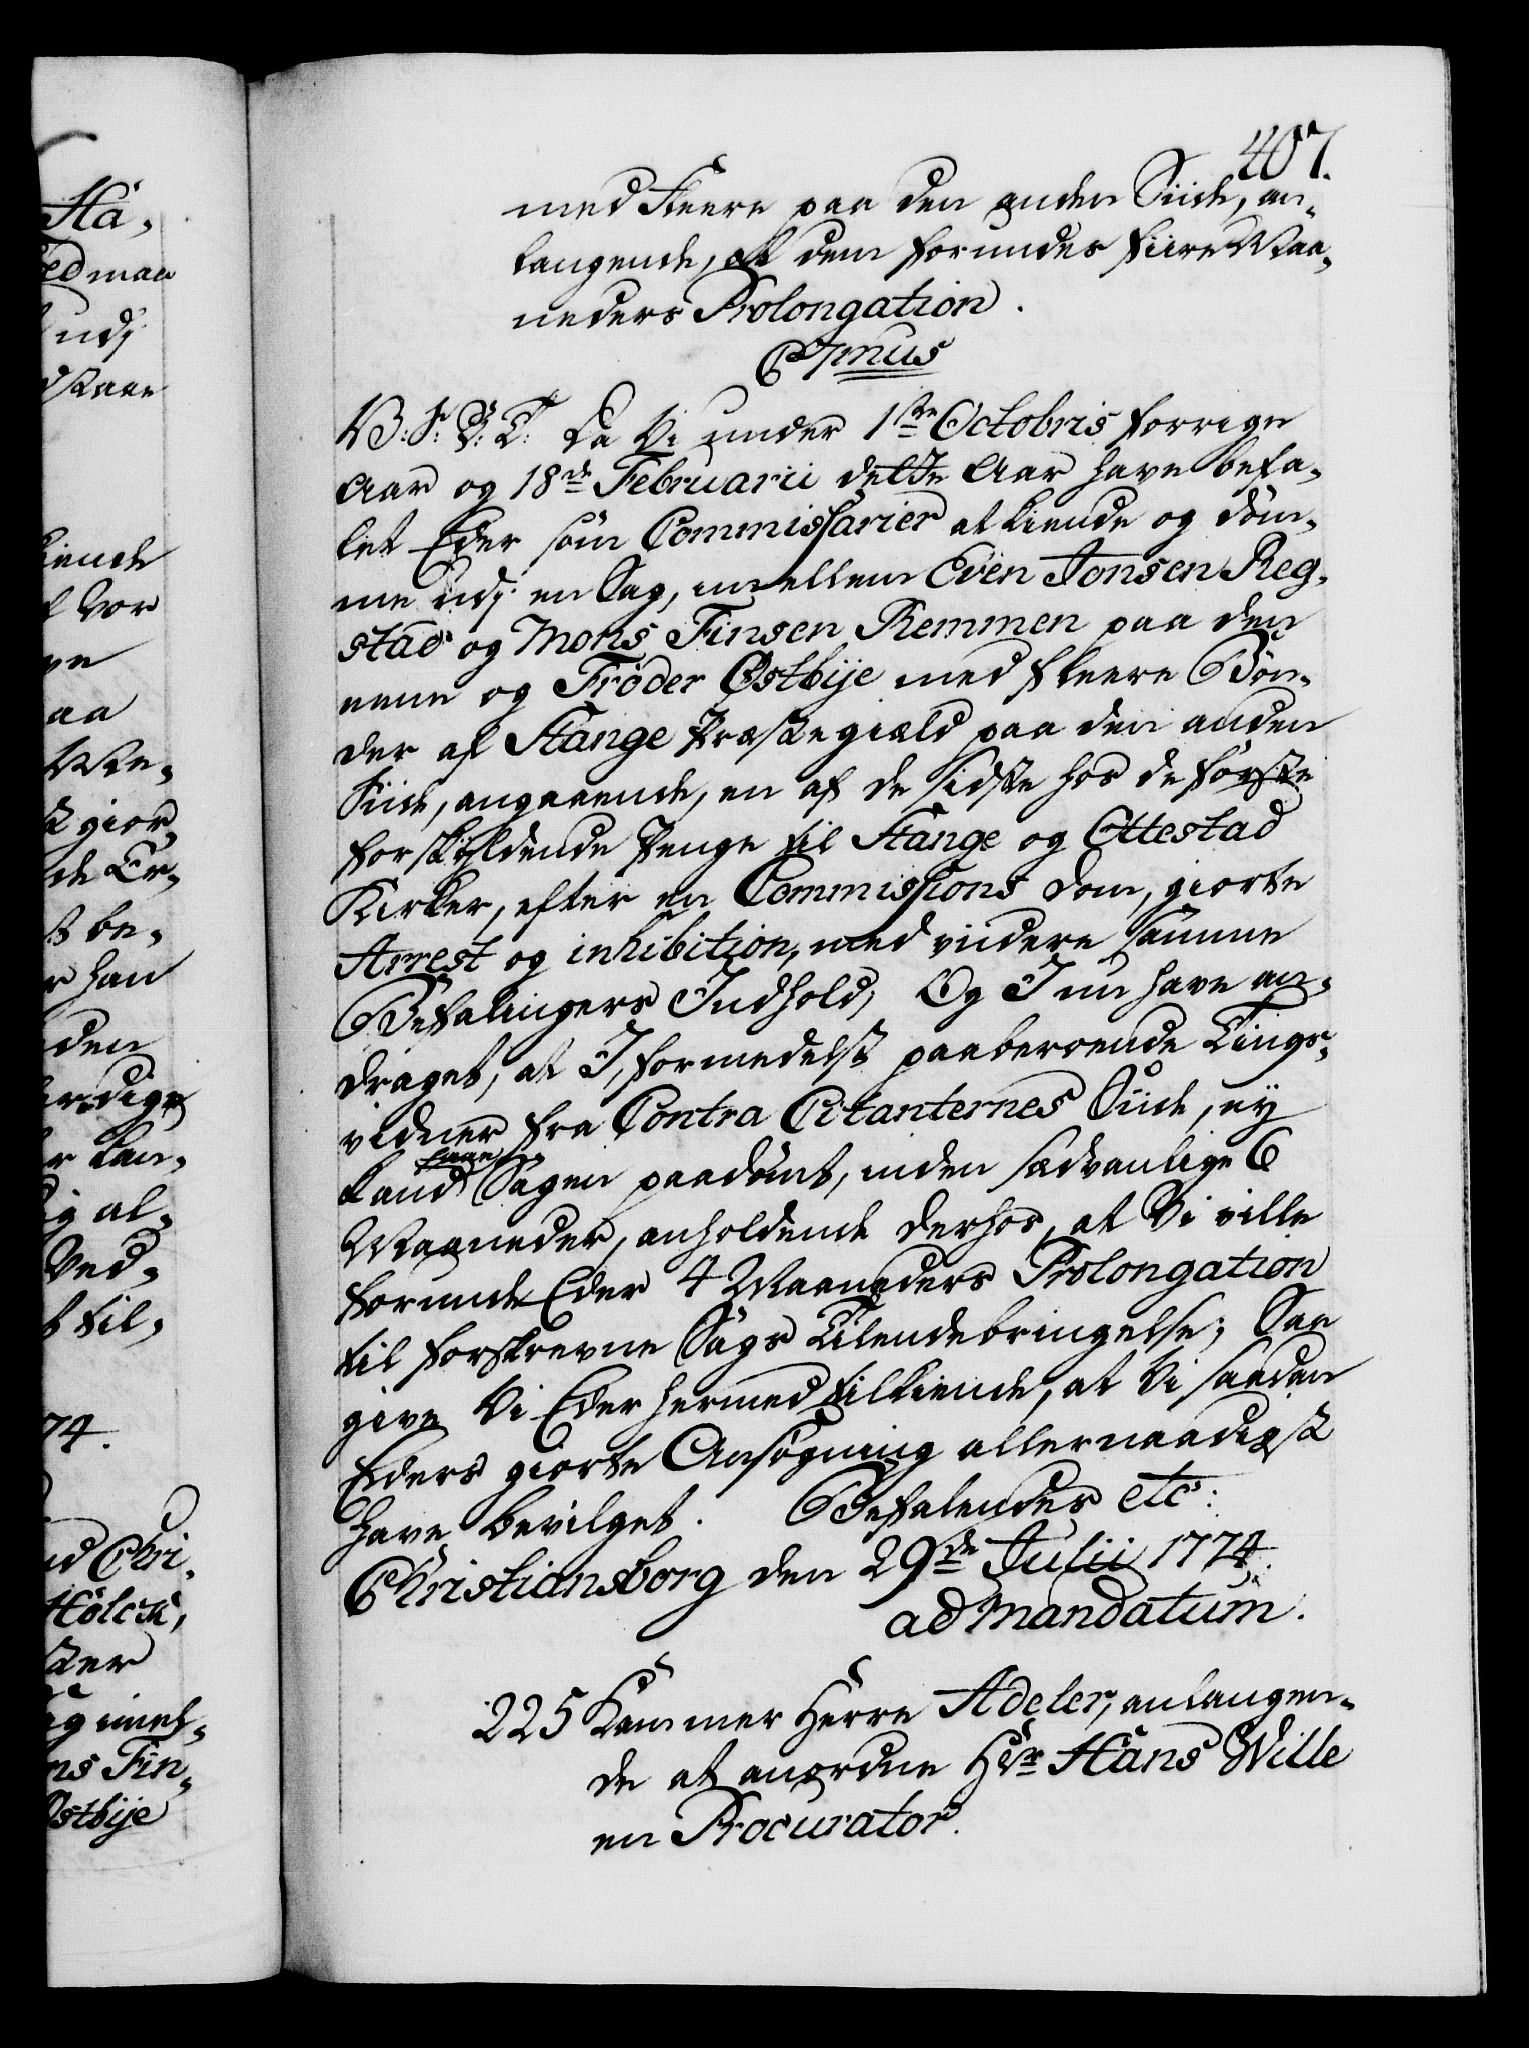 407.
med Fleere paa den anden Siide, an¬
langende, at dem forundes fiire Maa¬
neders Prolongation.
C7mus
V: S: G: T: Da Vi under 1ste Octobris forrige
Aar og 18de Februarii dette Aar have befa¬
let Eder som Commissarier at kiende og döm¬
me udj en Sag, imellem Even Jonsen Reg¬
stad og Mons Finsen Remmen paa den
eene og Frøder Østbije med fleere Bön¬
der af Stange Præstegield paa den anden
Siide, angaaende, en af de sidste hos de første
forskyldende Penge til Stange og Ottestad
Kirker, efter en Commissions Dom, giorte
Arrest og inhibition, med viidere samme
Befalingers Indhold; Og I nu have an¬
draget, at I, formedelst paaberoende Tings¬
vidner fra Contra Citanternes Siide, ey
kand faae Sagen paadömt, inden sædvanlige 6
Maaneder, anholdende derhos, at Vi ville
forunde Eder 4 Maaneders Prolongation
til forskrevne Sags Tilendebringelse; Saa
give Vi Eder hermed tilkiende, at Vi saadan
Eders giorte Ansögning allernaadigst
have bevilget. Befalendes etc:
Christiansborg den 29de Julii 1774.
ad mandatum.
225 Kammer Herre Adeler, anlangen¬
de at anordne Hr Hans Wille
en Procurator.
Ha¬
edmaa
udj
kiende
Vor
aa
giør¬
de Er¬
be¬
han
den
kan¬
al¬
Ved¬
til¬
74.
d Chri¬
Hölck,
g imel¬
ns Fin¬
Østbije